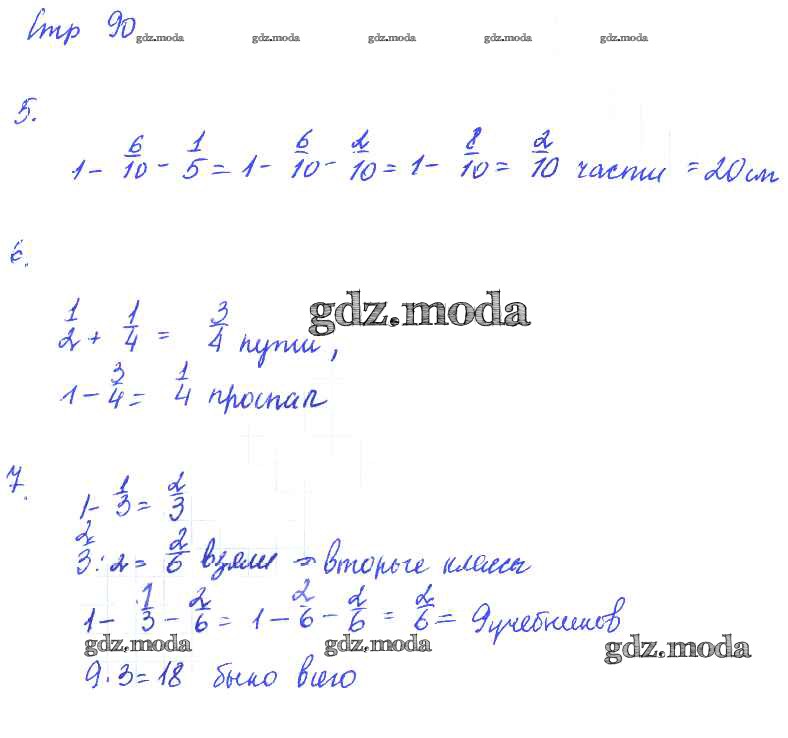 Стр 90 gdz.moda gdz.moda gdz.moda gdz.moda gdz.moda
5.
1 - 6/10 - 1/5 = 1 - 6/10 - 2/10 = 1 - 8/10 = 2/10 части = 20 см
6.
gdz.moda
1/2 + 1/4 = 3/4 пути,
1 - 3/4 = 1/4 проспал
7.
1 - 1/3 = 2/3
2/3 : 2 = 2/6 взяли - вторые классы
1 - 1/3 - 2/6 = 1 - 2/6 - 2/6 = 2/6 = 9 учебников
gdz.moda gdz.moda gdz.moda
9 · 3 = 18 было всего